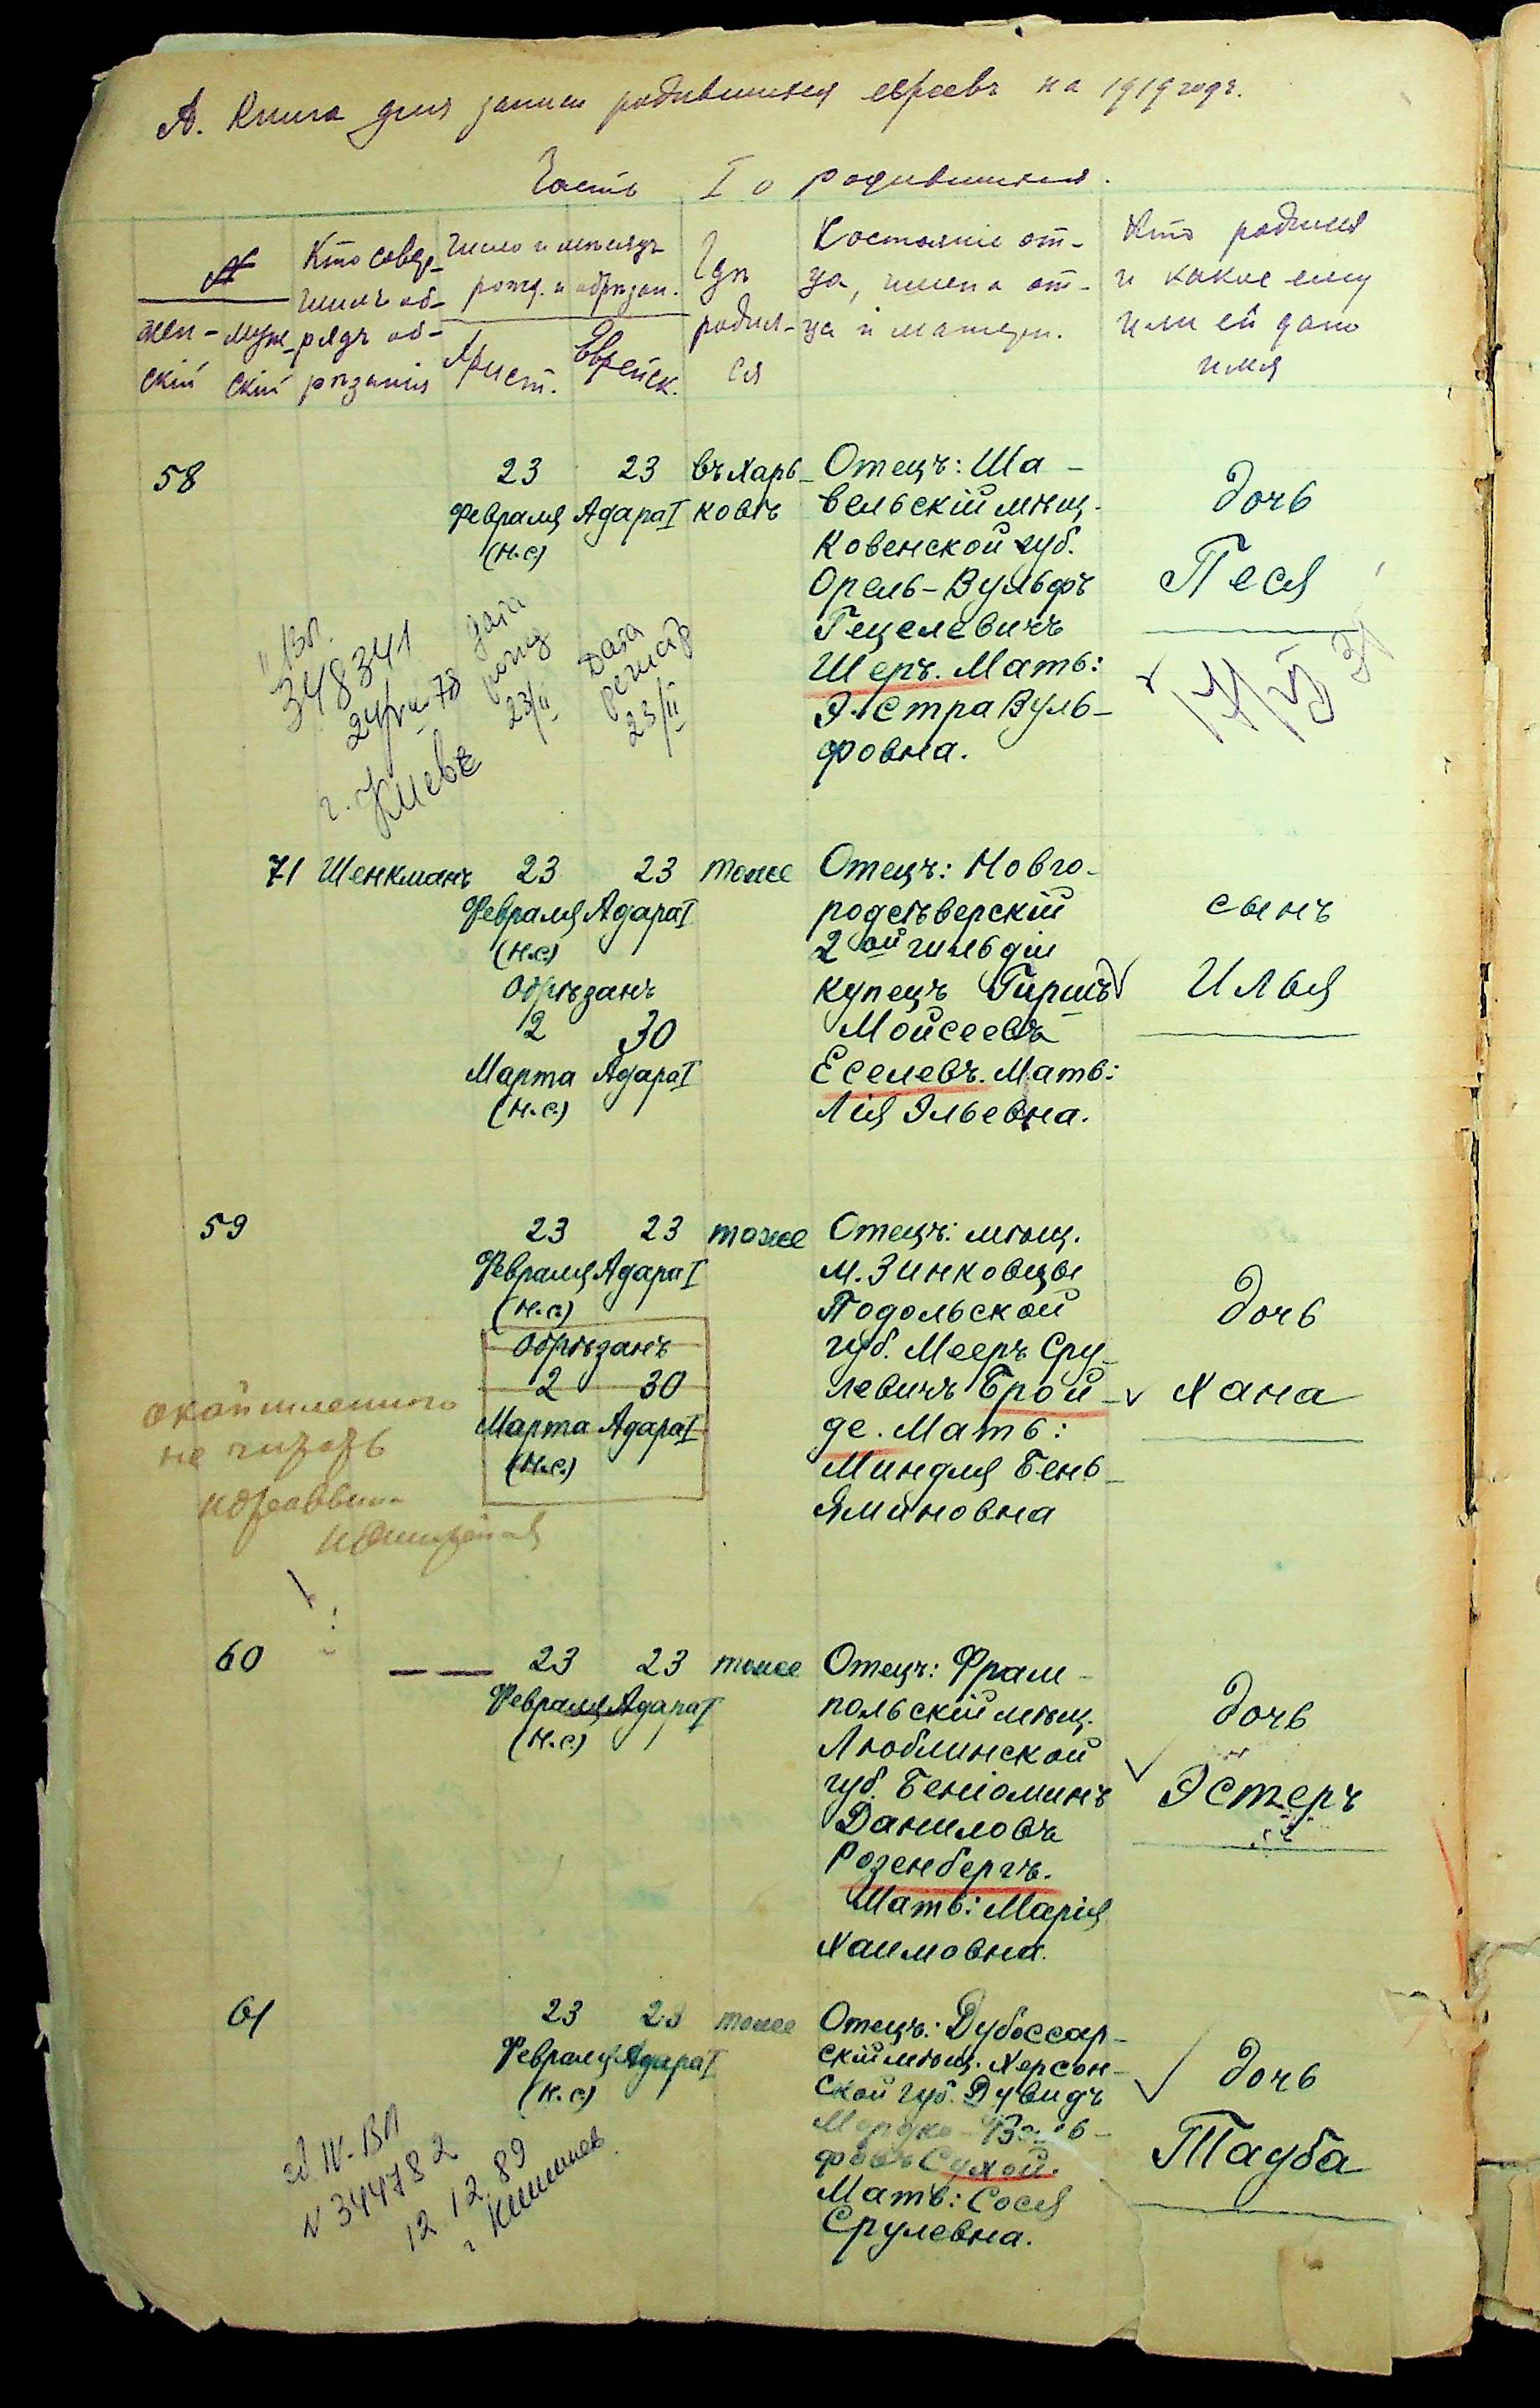 А. Книга для записи родившихся евреевъ на 1919 годъ.
Часть I о родившихся.
№
жен-
скій
муж-
скій
Кто совер-
шилъ об-
рядъ об-
рѣзанія
Число и мѣсяцъ
рожд. и обрѣзан.
Христ.
Еврейск.
Гдѣ
родил-
ся
Состояніе от-
ца, имена от-
ца и матери.
Кто родился
и какое ему
или ей дано
имя
58
23
Февраля
(н.с)
23
Адара I
въ Харь-
ковѣ
Отецъ: Ша-
вельскій мѣщ.
Ковенской губ.
Орель-Вульфъ
Гецелевичъ
Шеръ. Мать:
Эстра Вуль-
фовна.
дочь
Песя
348341
г. Киевъ
дата
рожд
23/II
Дата
регистр
23/II
71
Шенкманъ
23
Февраля
(н.с)
Обрѣзанъ
2
Марта
(н.с)
23
Адара I
30
Адара I
тоже
Отецъ: Новго-
родсѣверскій
2 ой гильдіи
купецъ Гиршъ
Мойсеевъ
Еселевъ. Мать:
Лія Эльевна.
сынъ
Илья
59
23
Февраля
(н.с)
Обрѣзанъ
2
Марта
(н.с)
23
Адара I
30
Адара I
тоже
Отецъ: мѣщ.
м. Зинковцы
Подольской
губ. Мееръ Сру-
левичъ Брой-
де. Мать:
Миндля Бень-
яминовна
дочь
Хана
не читать
60
23
Февраля
(н.с)
23
Адара I
тоже
Отецъ: Фрам-
польскій мѣщ.
Люблинской
губ. Беніоминъ
Даниловъ
Розенбергъ.
Мать: Марія
Хаимовна.
дочь
Эстеръ
61
23
Февраля
(н.с)
23
Адара I
тоже
Отецъ: Дубоссар-
скій мѣщ. Херсон-
ской губ. Дувидъ
Мордко-
Сухой.
Мать: Сося
Срулевна.
дочь
Тауба
IV-ВЛ
N 344782
12.12.89
г Кишинев.